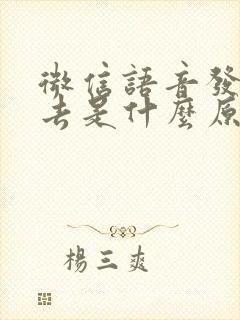 微信語音發
去是什麼原
楊三爽